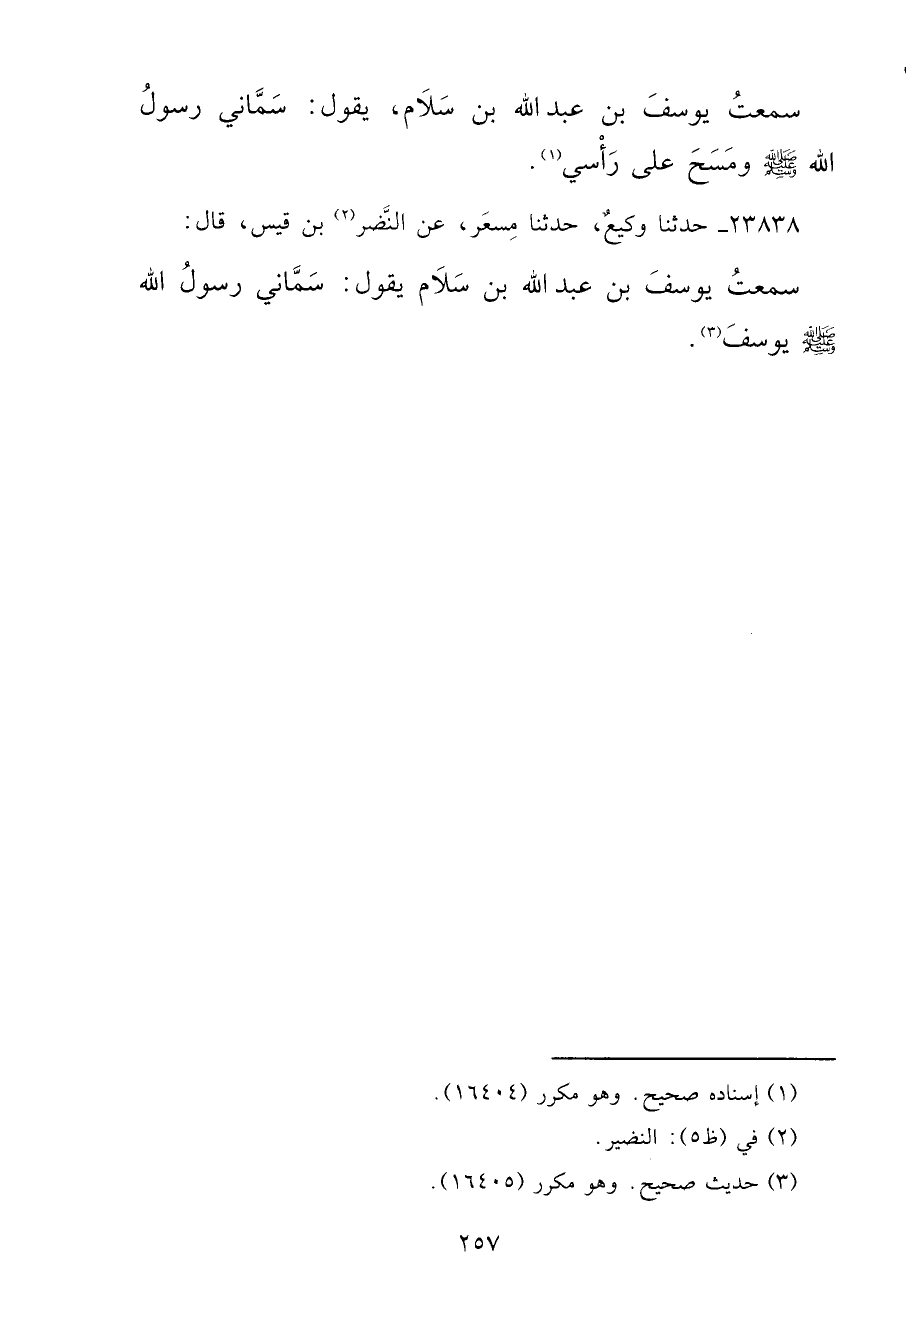 سمعتُ يوسفَ بن عبد الله بن سَلَام، يقول: سَمَّاني رسولُ
الله ﷺ ومَسَحَ على رَأْسي(١).
٢٣٨٣٨ـ حدثنا وكيعٌ، حدثنا مِسعَر، عن النَّضر(٢) بن قيس، قال:
سمعتُ يوسفَ بن عبد الله بن سَلَام يقول: سَمَّاني رسولُ الله
ﷺ يوسفَ(٣).
(١) إسناده صحيح. وهو مكرر (١٦٤٠٤).
(٢) في (ظ٥): النضير.
(٣) حديث صحيح. وهو مكرر (١٦٤٠٥).
٢٥٧